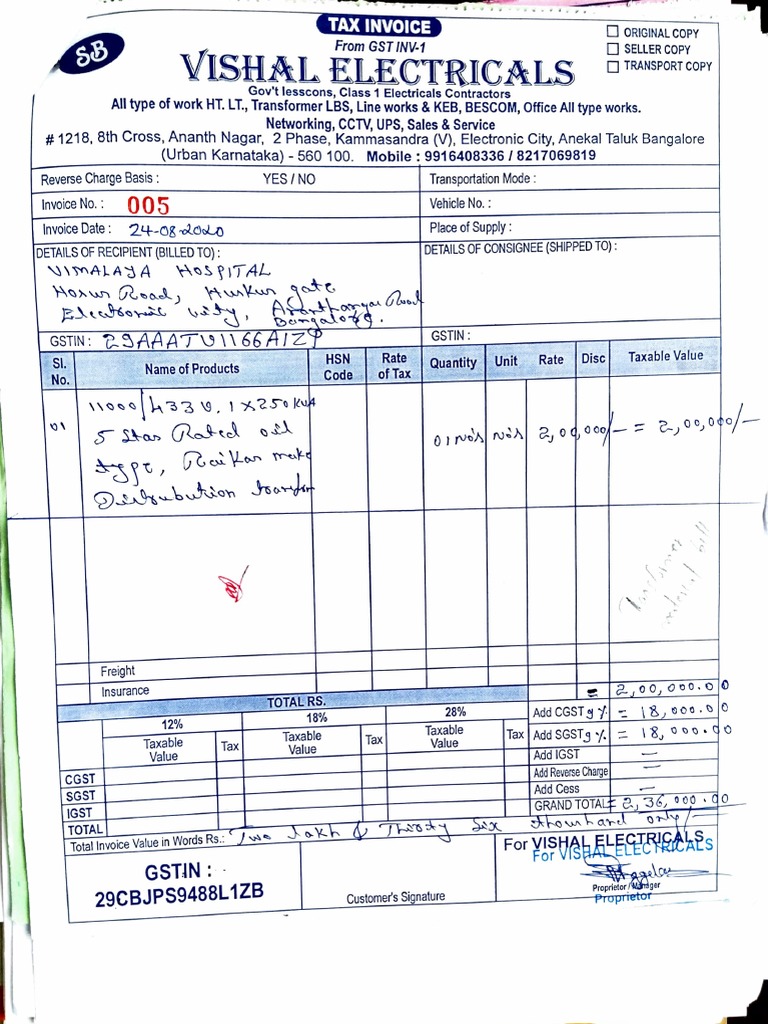 TAX INVOICE
From GST INV-1
☐ ORIGINAL COPY
☐ SELLER COPY
☐ TRANSPORT COPY
SB
VISHAL ELECTRICALS
Gov't lesscons, Class 1 Electricals Contractors
All type of work HT. LT., Transformer LBS, Line works & KEB, BESCOM, Office All type works.
Networking, CCTV, UPS, Sales & Service
# 1218, 8th Cross, Ananth Nagar, 2 Phase, Kammasandra (V), Electronic City, Anekal Taluk Bangalore
(Urban Karnataka) - 560 100. Mobile : 9916408336 / 8217069819
Reverse Charge Basis : YES / NO Transportation Mode :
Invoice No. : 005 Vehicle No. :
Invoice Date : 24-08-2020 Place of Supply :
DETAILS OF RECIPIENT (BILLED TO) : DETAILS OF CONSIGNEE (SHIPPED TO) :
VIMALAYA HOSPITAL
Hosur Road, Huskur gate
Electronic city, Road
Bangalore.
GSTIN : 29AAATV1166A1ZP GSTIN :
Sl. No. Name of Products HSN Code Rate of Tax Quantity Unit Rate Disc Taxable Value
01 11000/433 V. 1X250 KVA 01 No's No's 2,00,000/- = 2,00,000/-
5 Star Rated oil
type, Raikar make
Distribution transfor
Transformer
material bill
Freight
Insurance = 2,00,000.00
TOTAL RS.
12% 18% 28%
Taxable Value Tax Taxable Value Tax Taxable Value Tax
CGST
SGST
IGST
TOTAL
Add CGST 9 % = 18,000.00
Add SGST 9 % = 18,000.00
Add IGST —
Add Reverse Charge —
Add Cess —
GRAND TOTAL = 2,36,000.00
Total Invoice Value in Words Rs.: Two lakh & Thirty Six thoushand only/-
GSTIN :
29CBJPS9488L1ZB
Customer's Signature
For VISHAL ELECTRICALS
For VISHAL ELECTRICALS
Proprietor / Manager
Proprietor